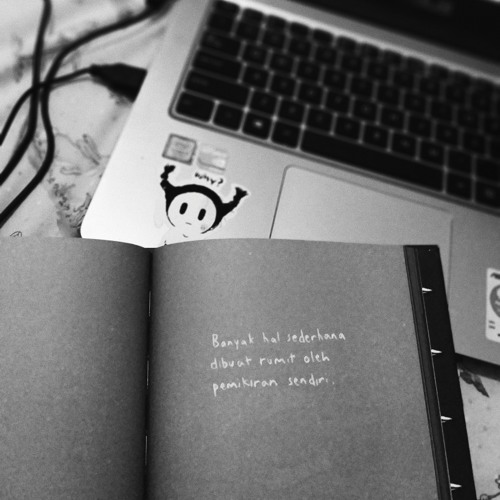 Why?
Banyak hal sederhana
dibuat rumit oleh
pemikiran sendiri.